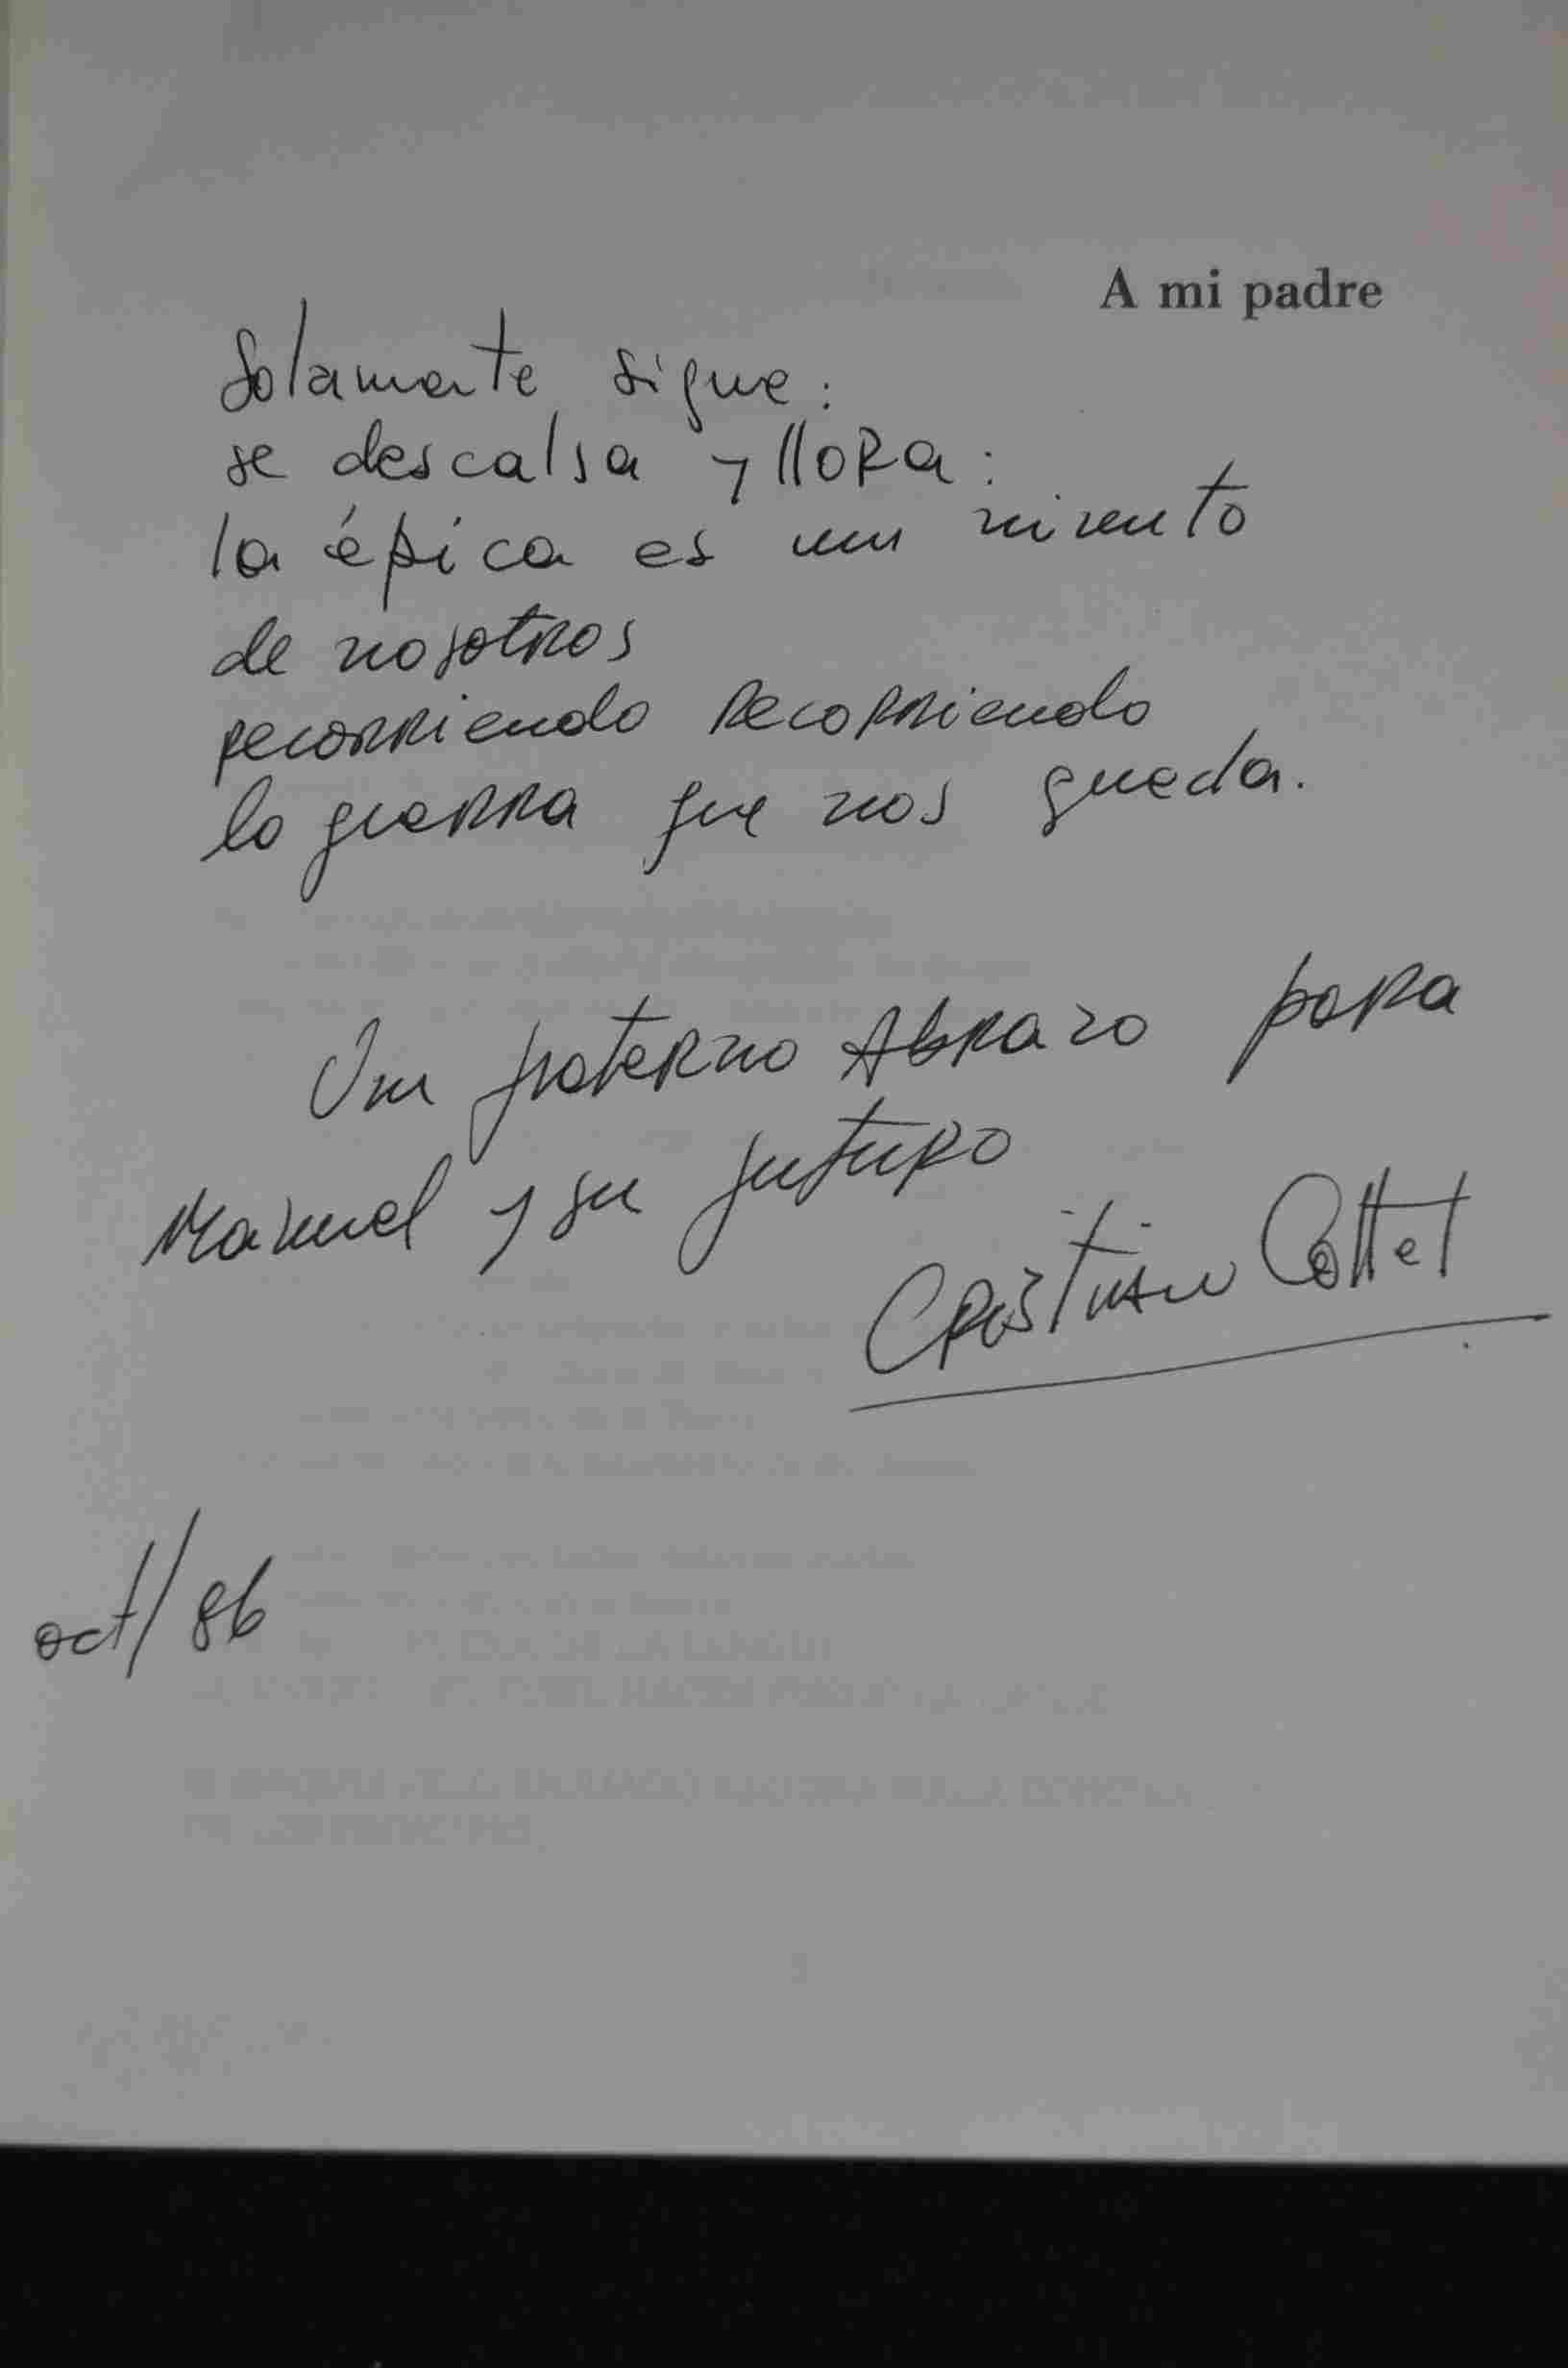 A mi padre
Solamente sigue:
se descalsa y llora:
la épica es un
de nosotros
recorriendo recorriendo
la guerra que nos queda.
Un fraterno Abrazo para
Manuel y su futuro
Cristian Cottet
oct/86